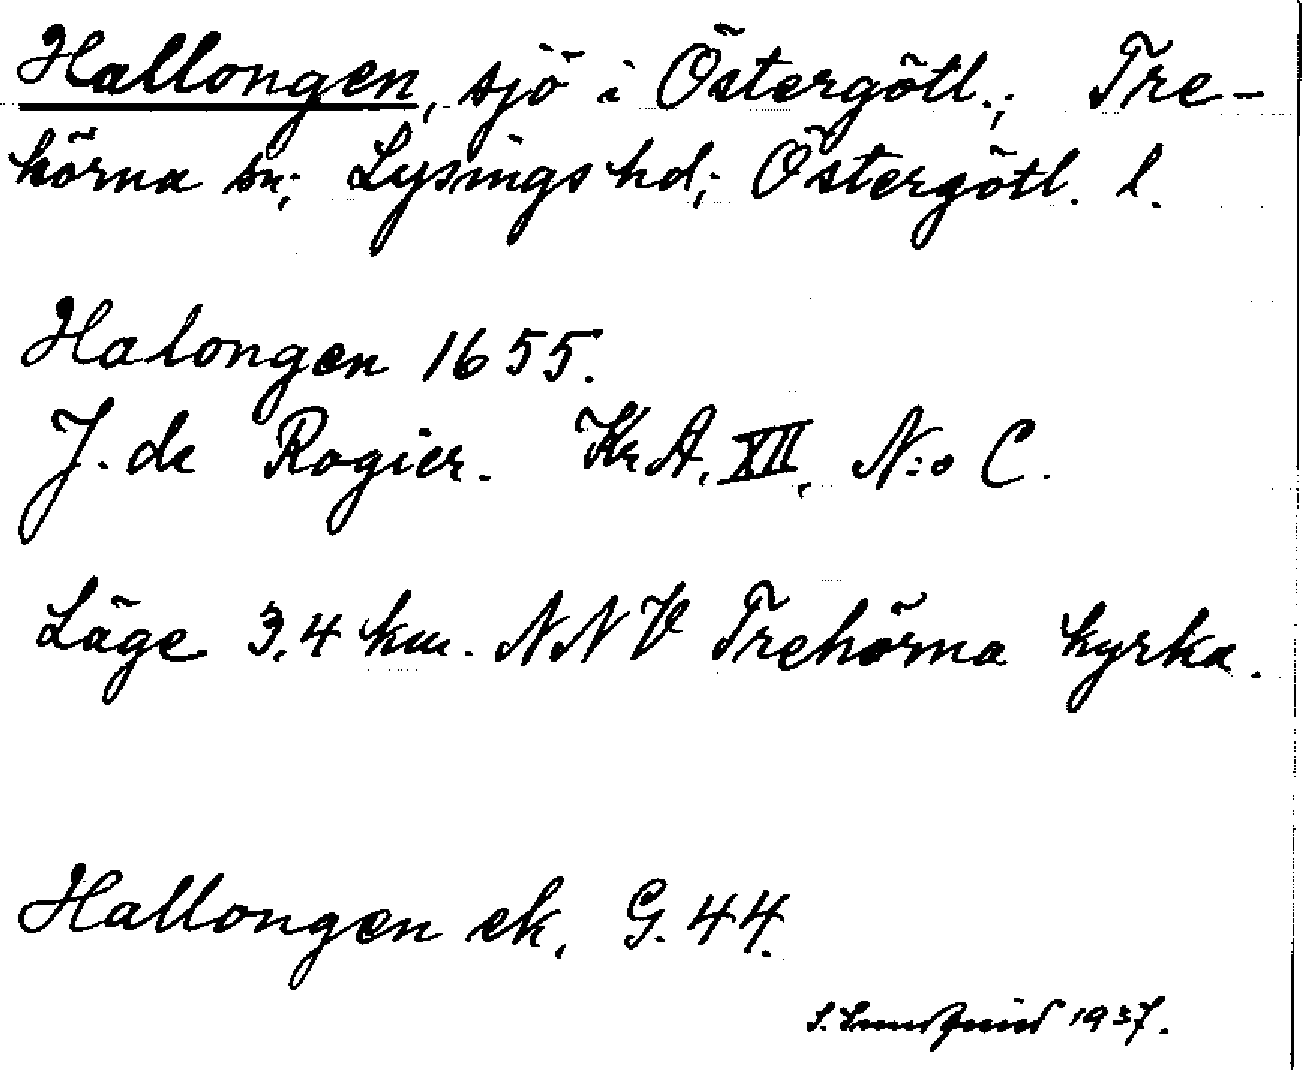 Hallongen, sjö i Östergötl.; Tre-
hörna sn; Lysings hd; Östergötl. l.
Halongen 1655.
J. de Rogier. Kr A, XII, N:o C.
Läge 3,4 km. NNV Trehörna kyrka.
Hallongen ek. G. 44.
1937.